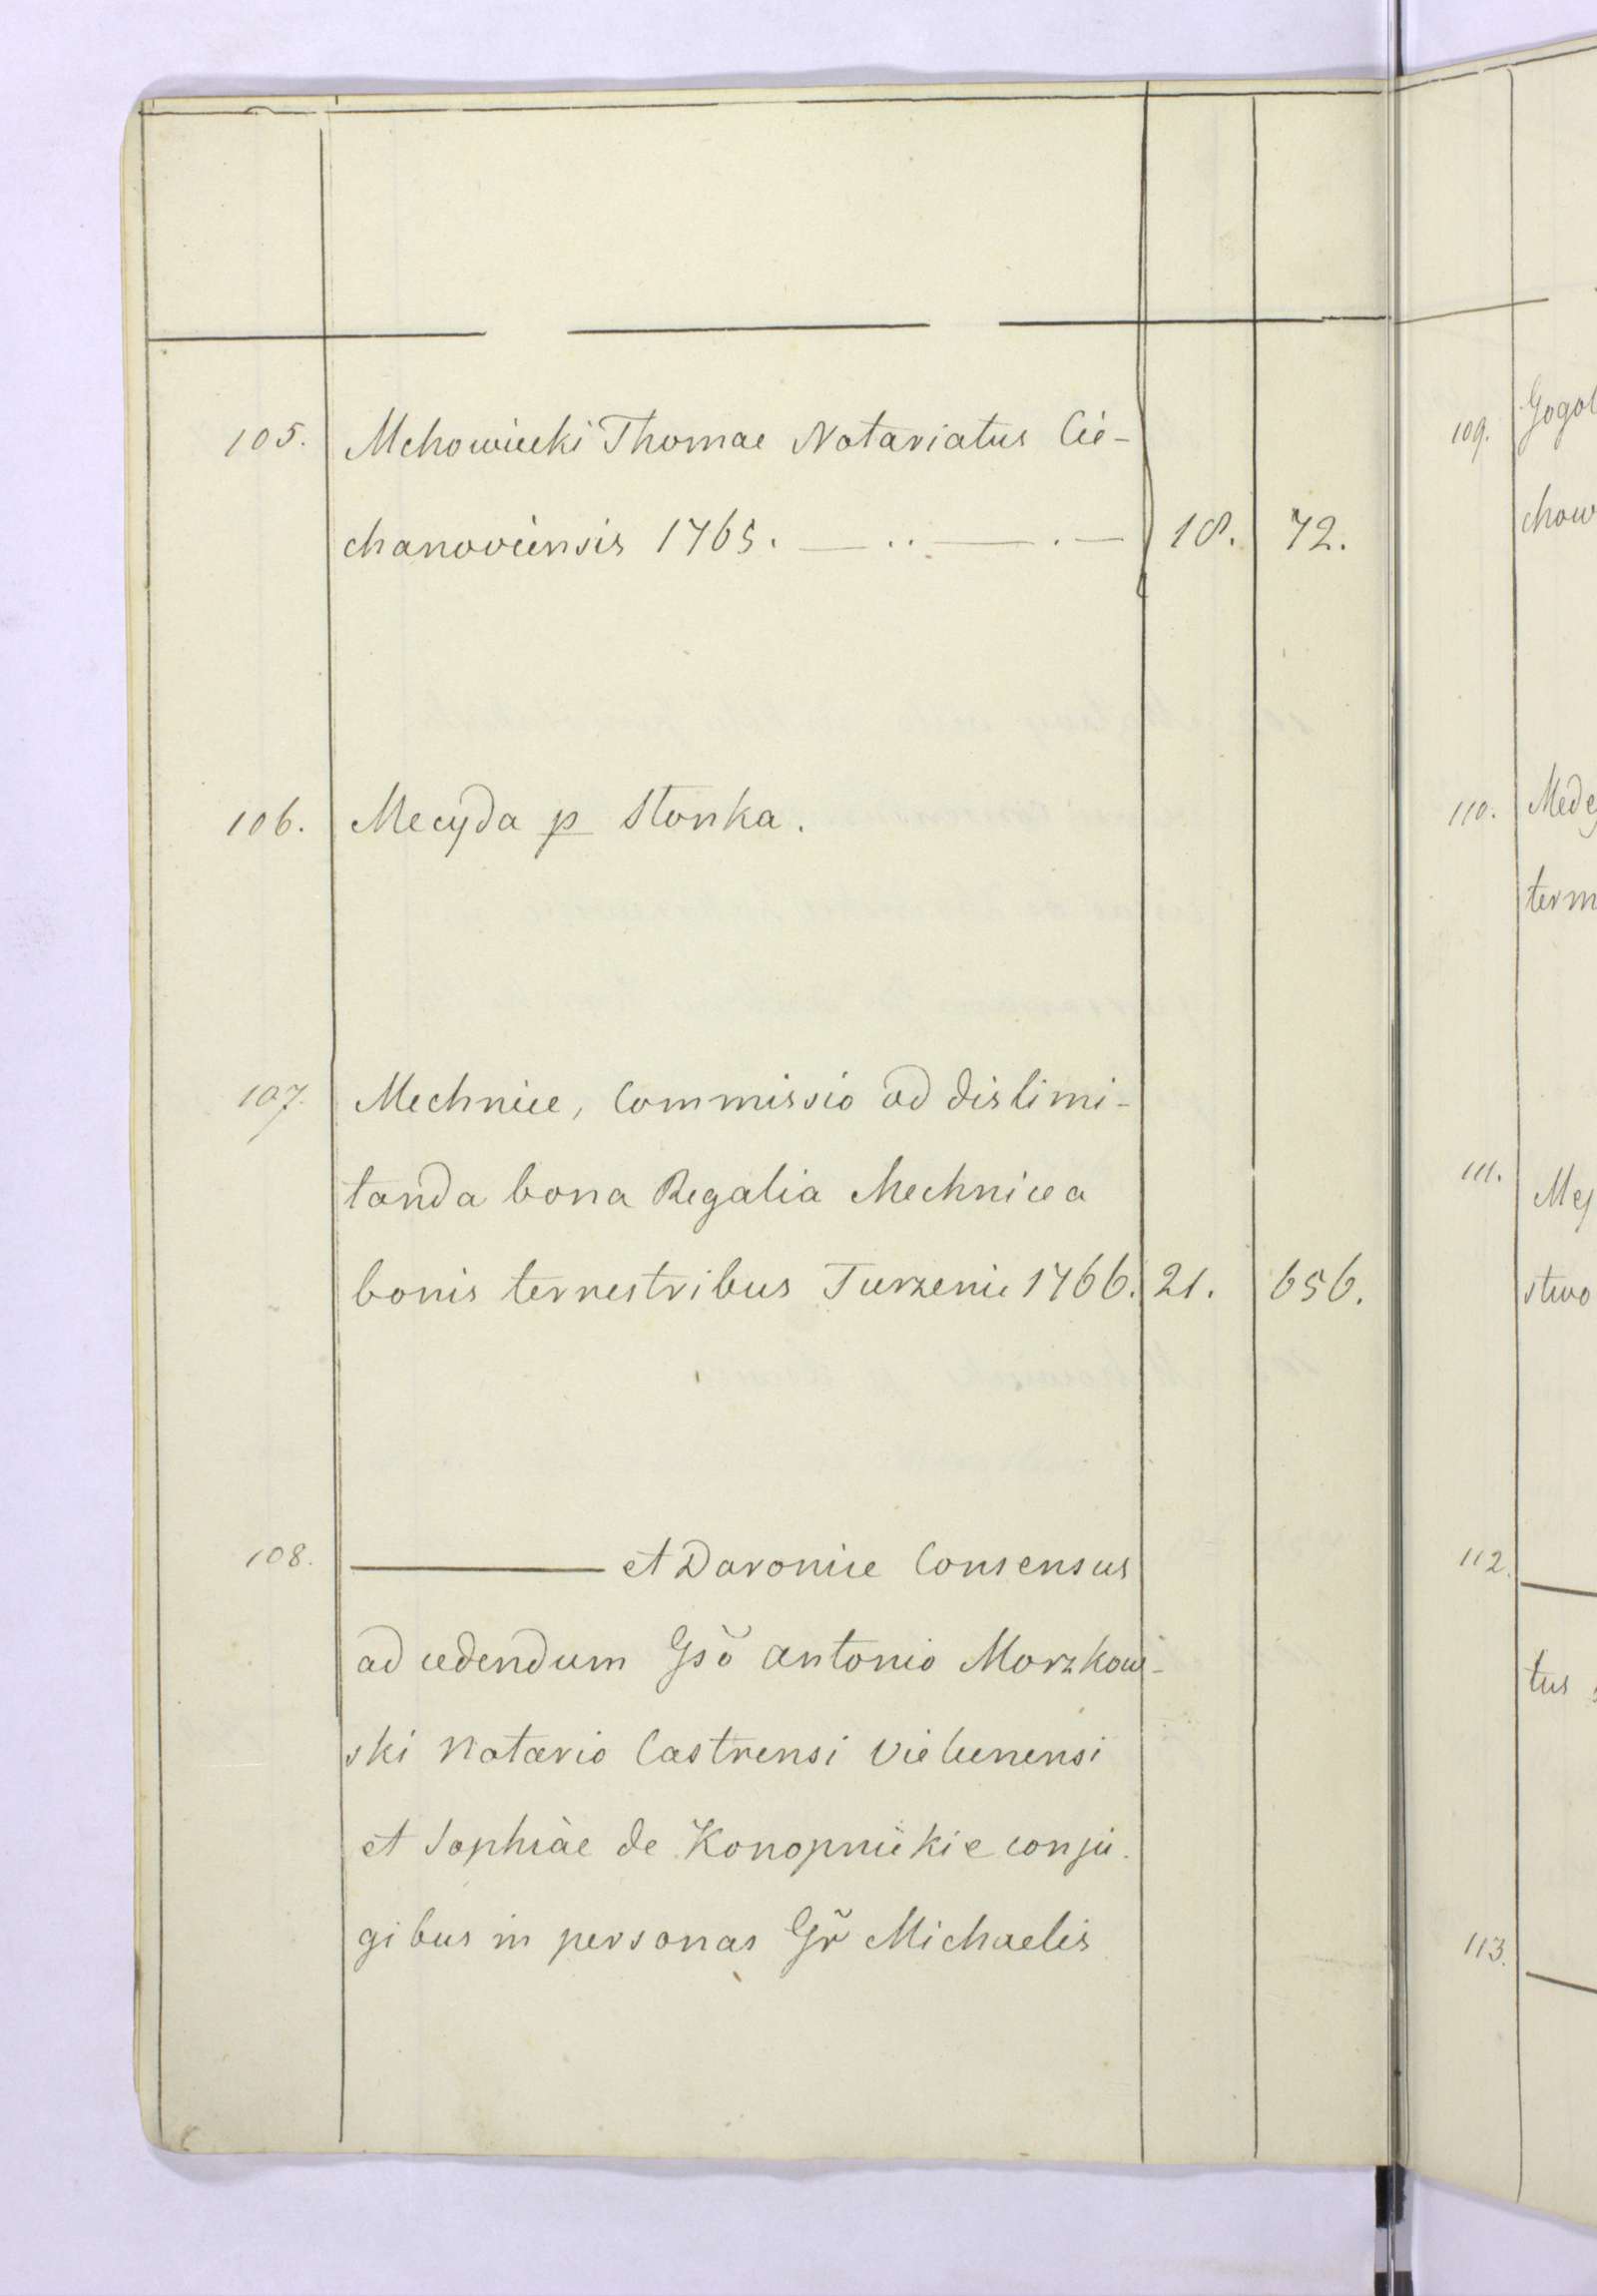 105. Mchowiecki Thomae Notariatus Cie-
chanoviensis 1765. 18. 72.
106. Mecyda p Stonka.
107. Mechnice, Commissio ad dislimi-
tanda bona Regalia Mechnice a
bonis terrestribus Turzenie 1766. 21. 656.
108. et Daronice Consensus
ad cedendum Gsõ Antonio Morzkow-
ski Notario Castrensi Vielunensi
et Sophiae de Konopnickie conju-
gibus in personas Gr̃ Michaelis
109. Gogol
chow
110. Medy
term
111. Mej
stwo
112.
tus
113.